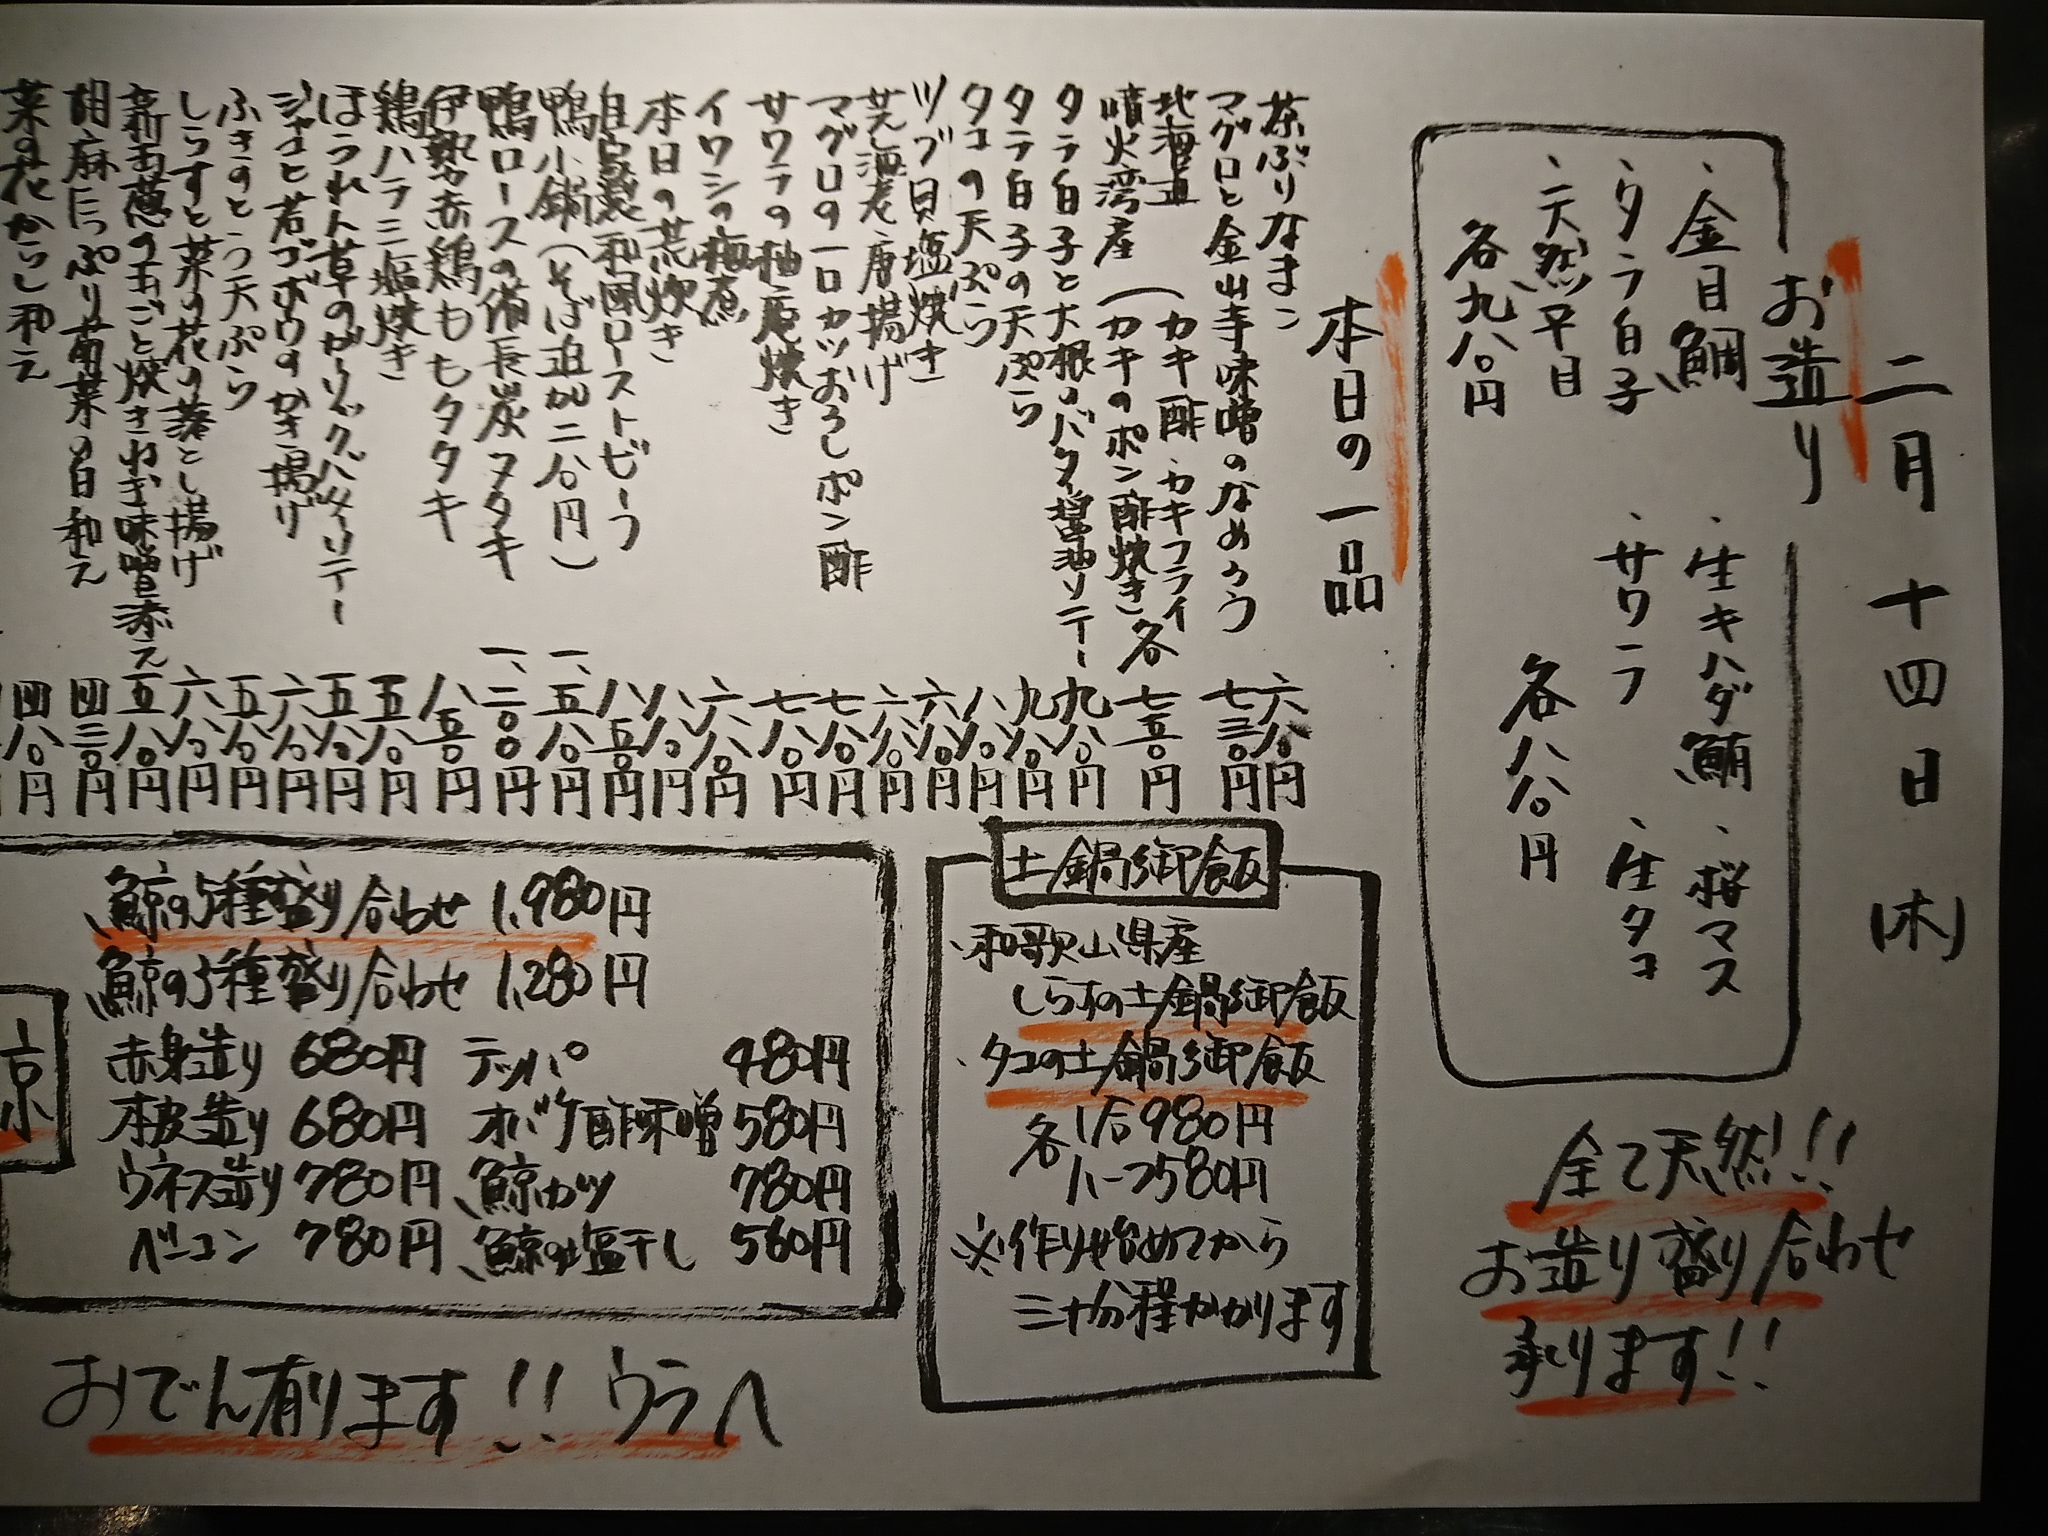 二月十四日(木)
お造り
・金目鯛
・タラ白子
・天然平目
各九八〇円
・生キハダ鮪
・桜マス
・サワラ
・生タコ
各八八〇円
全て天然!!
お造り盛り合わせ
承ります!!
本日の一品
茶ぶりなまこ 六八〇円
マグロと金山寺味噌のなめろう 七三〇円
北海道 噴火湾産 (カキ酢・カキフライ カキのポン酢焼き) 各 七五〇円
タラ白子と大根のバター醤油ソテー 九八〇円
タラ白子の天ぷら 九八〇円
タコの天ぷら 八八〇円
ツブ貝塩焼き 六八〇円
芝海老唐揚げ 六八〇円
マグロの一口カツおろしポン酢 七八〇円
サワラの柚庵焼き 七八〇円
イワシの梅煮 六八〇円
本日の荒炊き 八八〇円
自家製和風ローストビーフ 八五〇円
鴨小鍋(そば追加二八〇円) 一、五八〇円
鴨ロースの備長炭タタキ 一、二〇〇円
伊勢赤鶏ももタタキ 八五〇円
鶏ハラミ塩焼き 五八〇円
ほうれん草のガーリックバターソテー 五八〇円
ジャコと若ゴボウのかき揚げ 六八〇円
ふきのとう天ぷら 五八〇円
しらすと菜の花の落とし揚げ 六八〇円
新玉葱の丸ごと焼きねぎ味噌添え 五八〇円
胡麻たっぷり菊菜の白和え 四三〇円
菜の花からし和え 四八〇円
土鍋御飯
・和歌山県産
しらすの土鍋御飯
・タコの土鍋御飯
各 1合980円
ハーフ580円
※作り始めてから
三十分程かかります
鯨の5種盛り合わせ 1,980円
鯨の3種盛り合わせ 1,280円
赤身造り 680円 テッパ 480円
本皮造り 680円 オバケ酢味噌 580円
ウネス造り 780円 鯨カツ 780円
ベーコン 780円 鯨の塩干し 560円
おでん有ります!! ウラへ